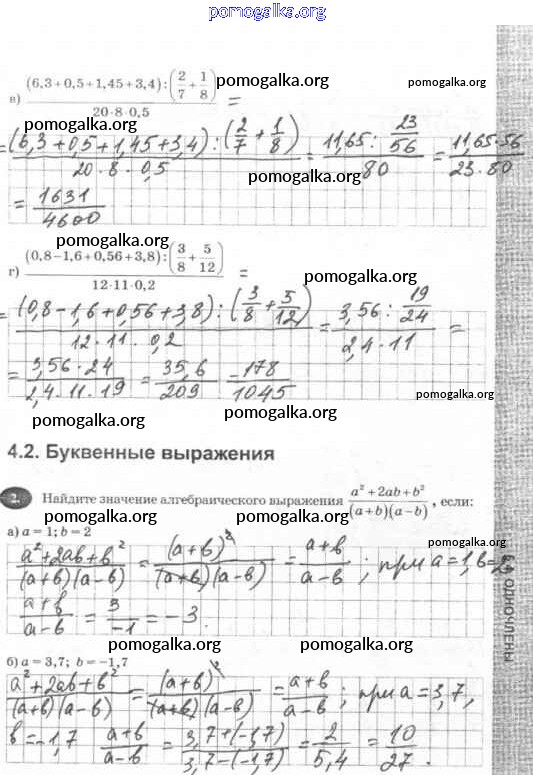 pomogalka.org
в) (6,3+0,5+1,45+3,4):(2/7+1/8) / 20·8·0,5 =
pomogalka.org pomogalka.org
pomogalka.org
=(6,3+0,5+1,45+3,4):(2/7+1/8) / 20·8·0,5 = 11,65:23/56 / 80 = 11,65·56 / 23·80
pomogalka.org
= 1631/4600
pomogalka.org
г) (0,8-1,6+0,56+3,8):(3/8+5/12) / 12·11·0,2 =
pomogalka.org pomogalka.org
=(0,8-1,6+0,56+3,8):(3/8+5/12) / 12·11·0,2 = 3,56:19/24 / 2,4·11 =
= 3,56·24 / 2,4·11·19 = 35,6/209 = 178/1045
pomogalka.org
pomogalka.org pomogalka.org
4.2. Буквенные выражения
2. Найдите значение алгебраического выражения a²+2ab+b² / (a+b)(a-b), если:
pomogalka.org pomogalka.org
а) a = 1; b = 2
a²+2ab+b² / (a+b)(a-b) = (a+b)² / (a+b)(a-b) = a+b / a-b ; при a=1, b=2
a+b / a-b = 3/-1 = -3.
pomogalka.org
pomogalka.org pomogalka.org
б) a = 3,7; b = -1,7
a²+2ab+b² / (a+b)(a-b) = (a+b)² / (a+b)(a-b) = a+b / a-b ; при a=3,7,
b=-1,7 a+b / a-b = 3,7+(-1,7) / 3,7-(-1,7) = 2/5,4 = 10/27.
pomogalka.org pomogalka.org
ОДНОЧЛЕНЫ